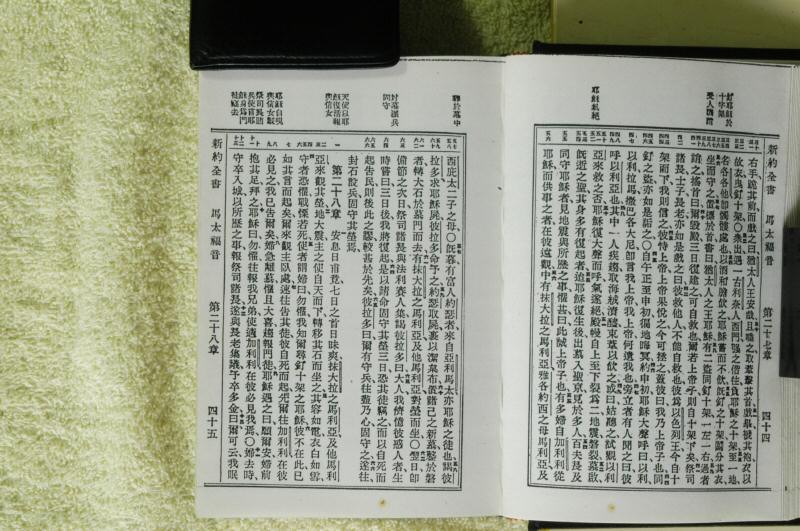 釘耶穌於
十字架
受人譏誚
耶穌氣絕
右手跪其前而戲之曰猶太人王安哉且唾之取葦擊其首戲畢褫其袍衣以
故衣曳釘十架〇衆出遇一古利奈人西門强之偕往負耶穌之十架至一地
名各各他卽髑髏處也以酒和膽飲之耶穌嘗而不飲旣釘之十架鬮分其衣
坐而守之置標於首書曰猶太人之王耶穌有二盜同釘十架一左一右過者
譏之搖首曰爾毀殿三日復建之可自救也爾若上帝子則自十架下矣祭司
諸長士子長老亦如是戲之曰彼救他人不能自救也彼爲以色列王今自十
架而下我則信之彼恃上帝上帝果悅之今可拯之蓋彼曰我乃上帝子也同
釘之盜亦如是詬之〇自午正至申初徧地晦冥約申初耶穌大聲呼曰以利
以利拉馬撒巴各大尼卽言我上帝我上帝何遺我也旁立者有人聞之曰彼
呼以利亞也其中一人疾趨取海絨漬醯束葦以飲之或曰姑聽之試觀以利
亞來救之否耶穌復大聲而呼氣遂絕殿幔自上至下裂爲二地震磐裂墓啟
旣逝之聖其身多有復起者迨耶穌復生後出墓入聖京見於多人百夫長及
同守耶穌者見地震與所歷之事懼甚曰此誠上帝子也有多婦自加利利從
耶穌而供事之者在彼遠觀中有抹大拉之馬利亞雅各約西之母馬利亞及
新約全書 馬太福音 第二十七章 四十四
葬於墓中
封墓謹兵
固守
天使以耶
穌復活報
與信女
耶穌自現
與信女觀
西庇太二子之母〇旣暮有富人約瑟者來自亞利馬太亦耶穌之徒也謁彼
拉多求耶穌屍彼拉多命予之約瑟取屍裹以潔枲布藏諸己之新墓鑿於磐
者轉大石於墓門而去有抹大拉之馬利亞及他馬利亞對塋而坐〇翌日卽
備節之次日祭司諸長與法利賽人集謁彼拉多曰大人我儕憶彼惑人者生
時嘗曰三日後我將復起是以請命固守其塋三日恐其徒竊之而以自死而
起告民則後此之謬較甚於先矣彼拉多曰爾有守兵往盡乃心固守之遂往
封石設兵固守其塋焉
第二十八章 安息日甫竟七日之首日昧爽抹大拉之馬利亞及他馬利
亞來觀其塋地大震主之使自天而下轉移其石而坐之其容如電衣白如雪
守者恐懼戰慄若死使者謂婦曰勿懼我知爾尋釘十架之耶穌彼不在此已
如其言而起矣爾來觀主臥處速往告其徒彼自死而起先爾往加利利在彼
必見之我已告爾矣婦急離墓懼且大喜趨報門徒耶穌遇之曰願爾安婦前
抱其足拜之耶穌曰勿懼往報我兄弟使適加利利在彼必見我焉〇婦去時
守卒入城以所歷之事報祭司諸長遂與長老集議予卒多金曰爾可云我眠
新約全書 馬太福音 第二十八章 四十五